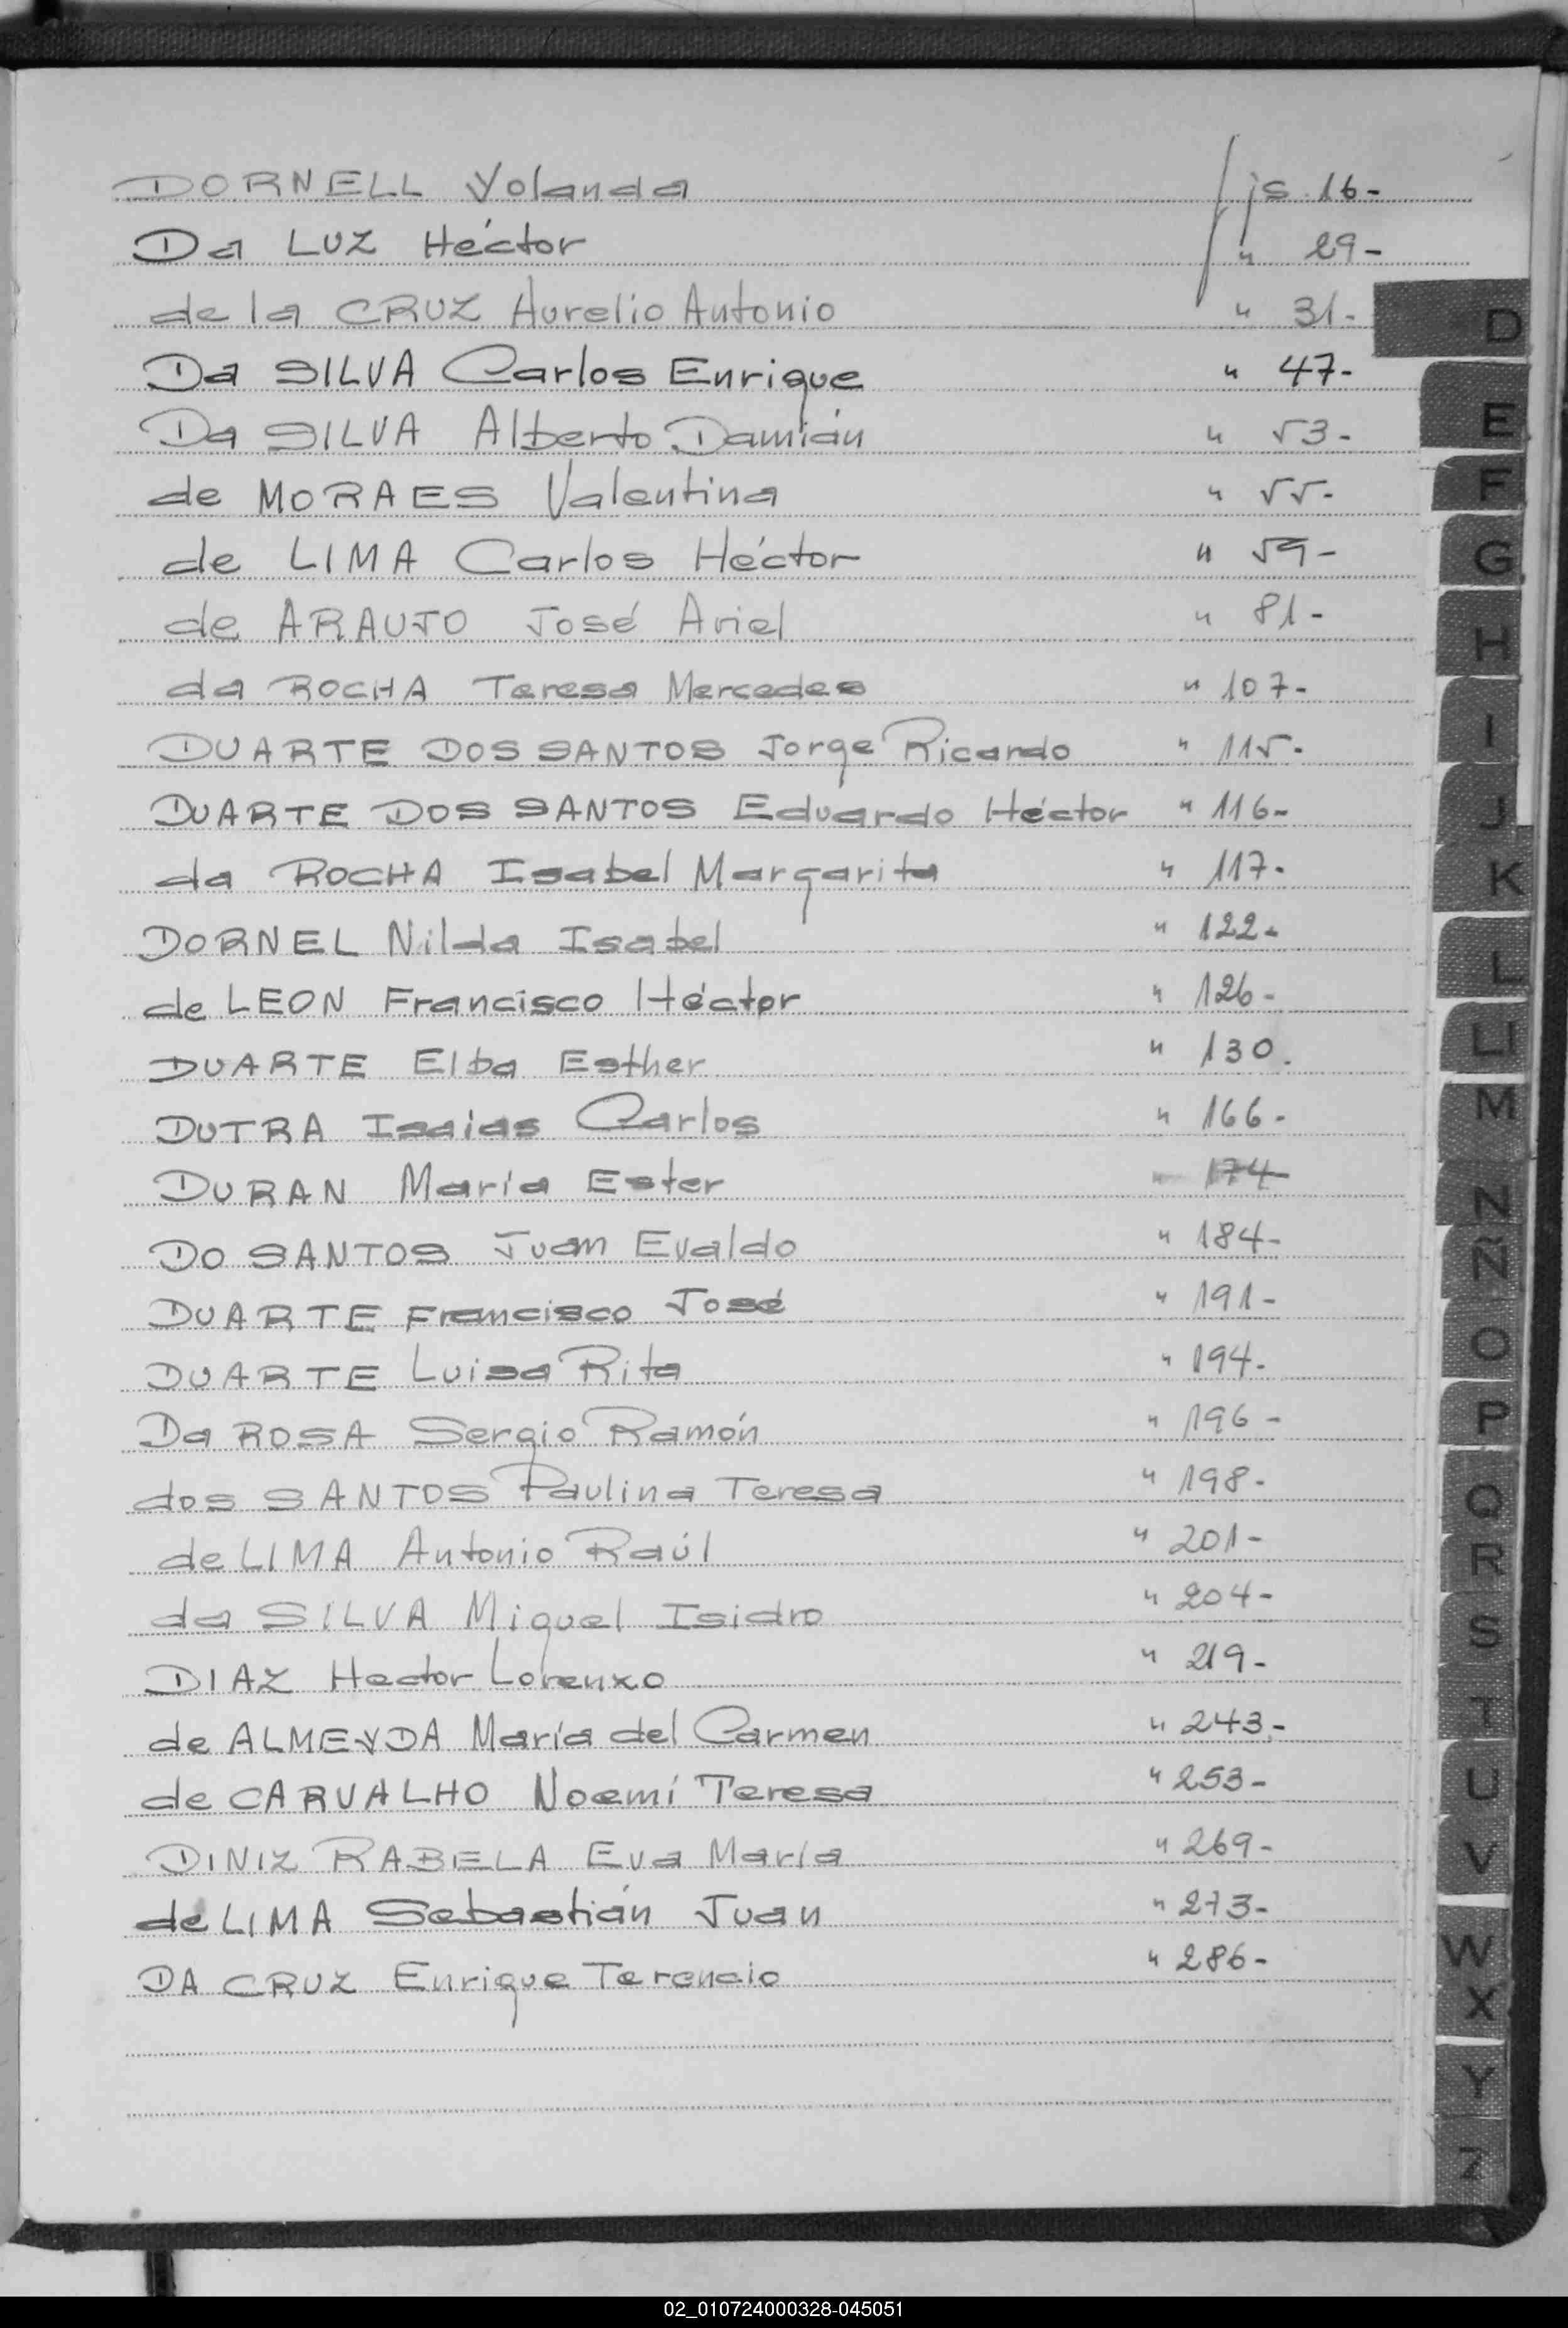 DORNELL Yolanda fjs 16-
Da LUZ Héctor " 29-
de la CRUZ Aurelio Antonio " 31-
Da SILVA Carlos Enrique " 47-
Da SILVA Alberto Damián " 53-
de MORAES Valentina " 55-
de LIMA Carlos Héctor " 59-
de ARAUJO José Ariel " 81-
da ROCHA Teresa Mercedes " 107-
DUARTE DOS SANTOS Jorge Ricardo " 115-
DUARTE DOS SANTOS Eduardo Héctor " 116-
da ROCHA Isabel Margarita " 117-
DORNEL Nilda Isabel " 122-
de LEON Francisco Héctor " 126-
DUARTE Elba Esther " 130.
DUTRA Isaias Carlos " 166-
DURAN María Ester " 174
DO SANTOS Juan Evaldo " 184-
DUARTE Francisco José " 191-
DUARTE Luisa Rita " 194-
Da ROSA Sergio Ramón " 196-
dos SANTOS Paulina Teresa " 198-
de LIMA Antonio Raúl " 201-
da SILVA Miguel Isidro " 204-
DIAZ Hector Lorenzo " 219-
de ALMEYDA María del Carmen " 243-
de CARVALHO Noemí Teresa " 253-
DINIZ RABELA Eva María " 269-
de LIMA Sebastián Juan " 273-
DA CRUZ Enrique Terencio " 286-
D
E
F
G
H
I
J
K
L
Ll
M
N
Ñ
O
P
Q
R
S
T
U
V
W
X
Y
Z
02_010724000328-045051